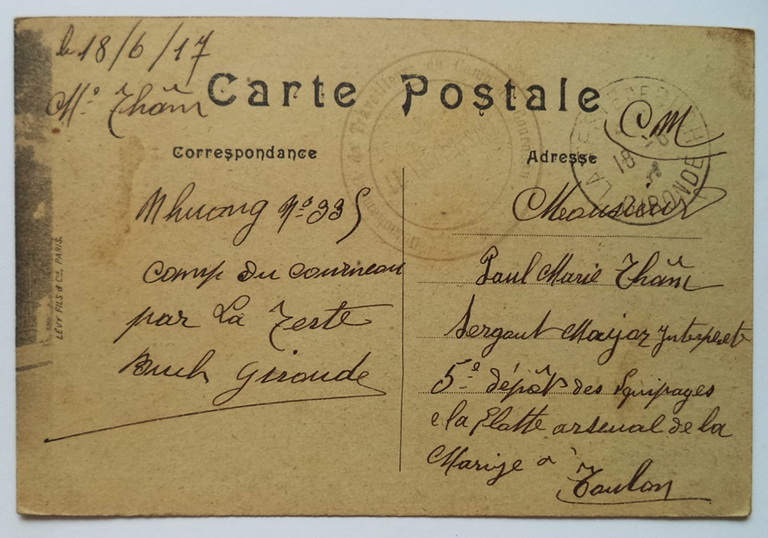 le 18/6/17
Mr Thâm
Carte Postale
CM
Correspondance
Adresse
Nhuong No 335
Camp du Courneau
par La Teste
Buch Gironde
Monsieur
Paul Marie Thâm
Sergent Major Interprete
5e dépôts des Equipages
de la Flotte arsenal de la
Marine à
Toulon
LÉVY FILS & Cie, PARIS.
LA TESTE DE BUCH
18 -6
GIRONDE